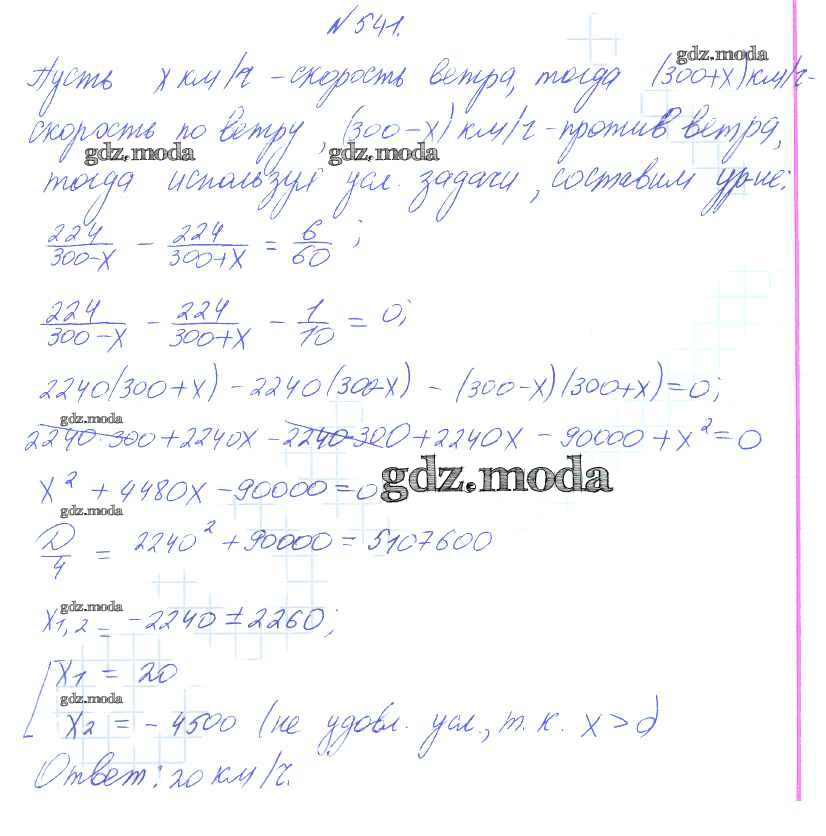 №541.
Пусть x км/ч - скорость ветра, тогда (300+x) км/ч-
gdz.moda
скорость по ветру, (300-x) км/ч - против ветра,
gdz.moda gdz.moda
тогда используя усл. задачи, составим ур-ие:
224/(300-x) - 224/(300+x) = 6/60;
224/(300-x) - 224/(300+x) - 1/10 = 0;
2240(300+x) - 2240(300-x) - (300-x)(300+x)=0;
gdz.moda
2240·300+2240x-2240·300+2240x-90000+x²=0
x²+4480x-90000=0
gdz.moda
gdz.moda
D/4 = 2240²+90000=5107600
gdz.moda
x1,2 = -2240±2260;
x1 = 20
gdz.moda
x2 = -4500 (не удовл. усл., т.к. x>0
Ответ: 20 км/ч.